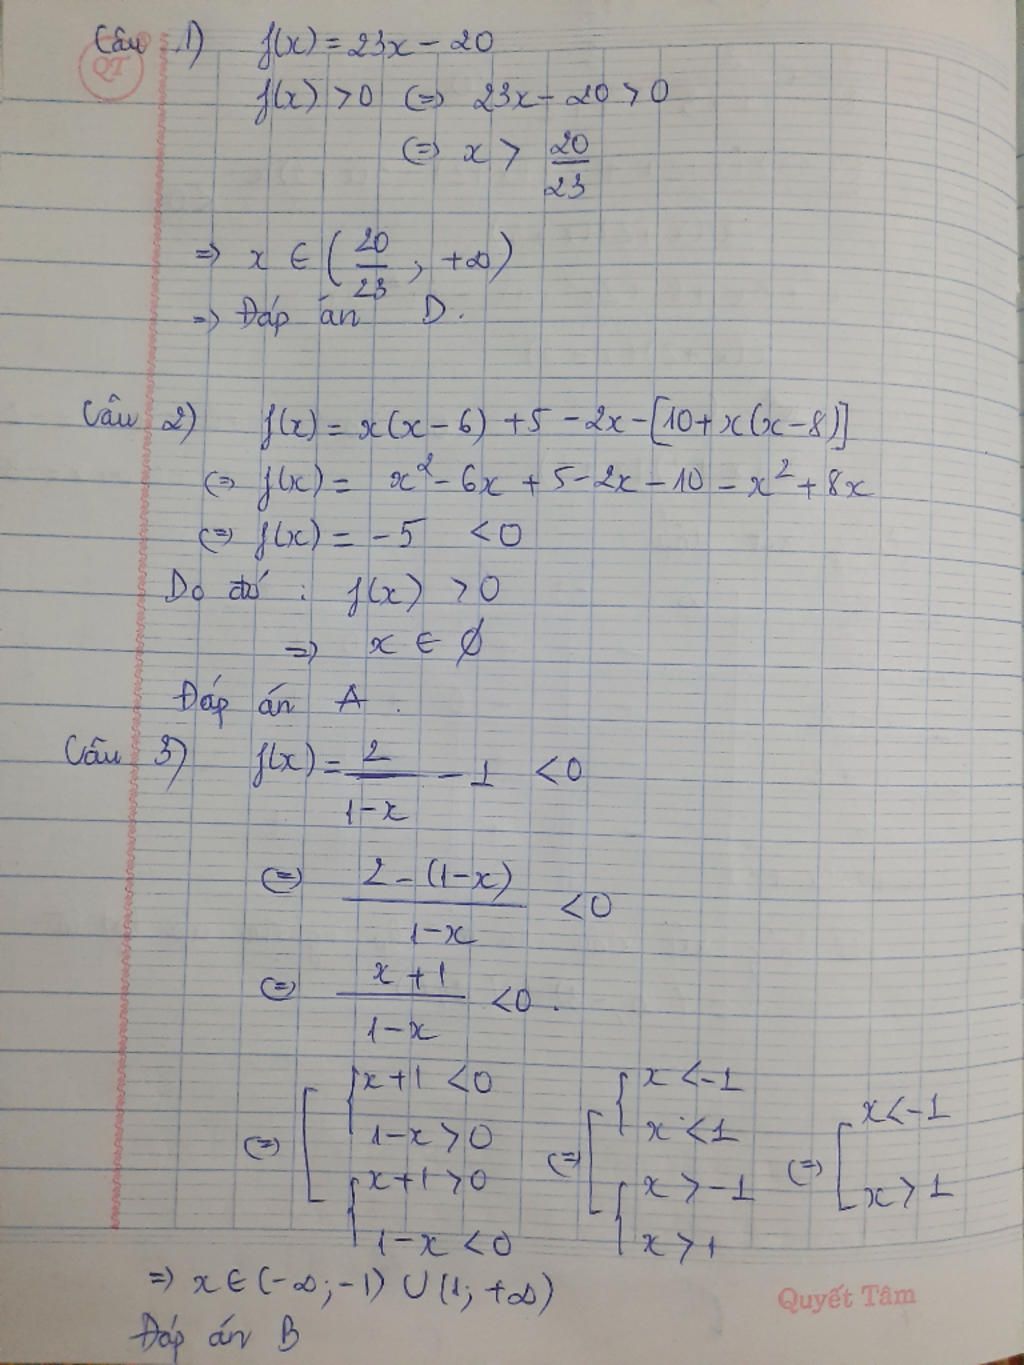 Câu 1) f(x) = 23x - 20
QT
f(x) > 0 (=) 23x - 20 > 0
(=) x > 20/23
=> x ∈ (20/23, +∞)
=> Đáp án D.
Câu 2) f(x) = x(x-6) + 5 - 2x - [10 + x(x-8)]
(=) f(x) = x² - 6x + 5 - 2x - 10 - x² + 8x
(=) f(x) = -5 < 0
Do đó : f(x) > 0
=> x ∈ ∅
Đáp án A.
Câu 3) f(x) = 2/(1-x) - 1 < 0
(=) (2-(1-x))/(1-x) < 0
(=) (x+1)/(1-x) < 0.
(=) [ { x+1 < 0 ; 1-x > 0 ; { x+1 > 0 ; 1-x < 0 (=) [ { x < -1 ; x < 1 ; { x > -1 ; x > 1 (=) [ x < -1 ; x > 1
=> x ∈ (-∞; -1) ∪ (1; +∞)
Quyết Tâm
Đáp án B